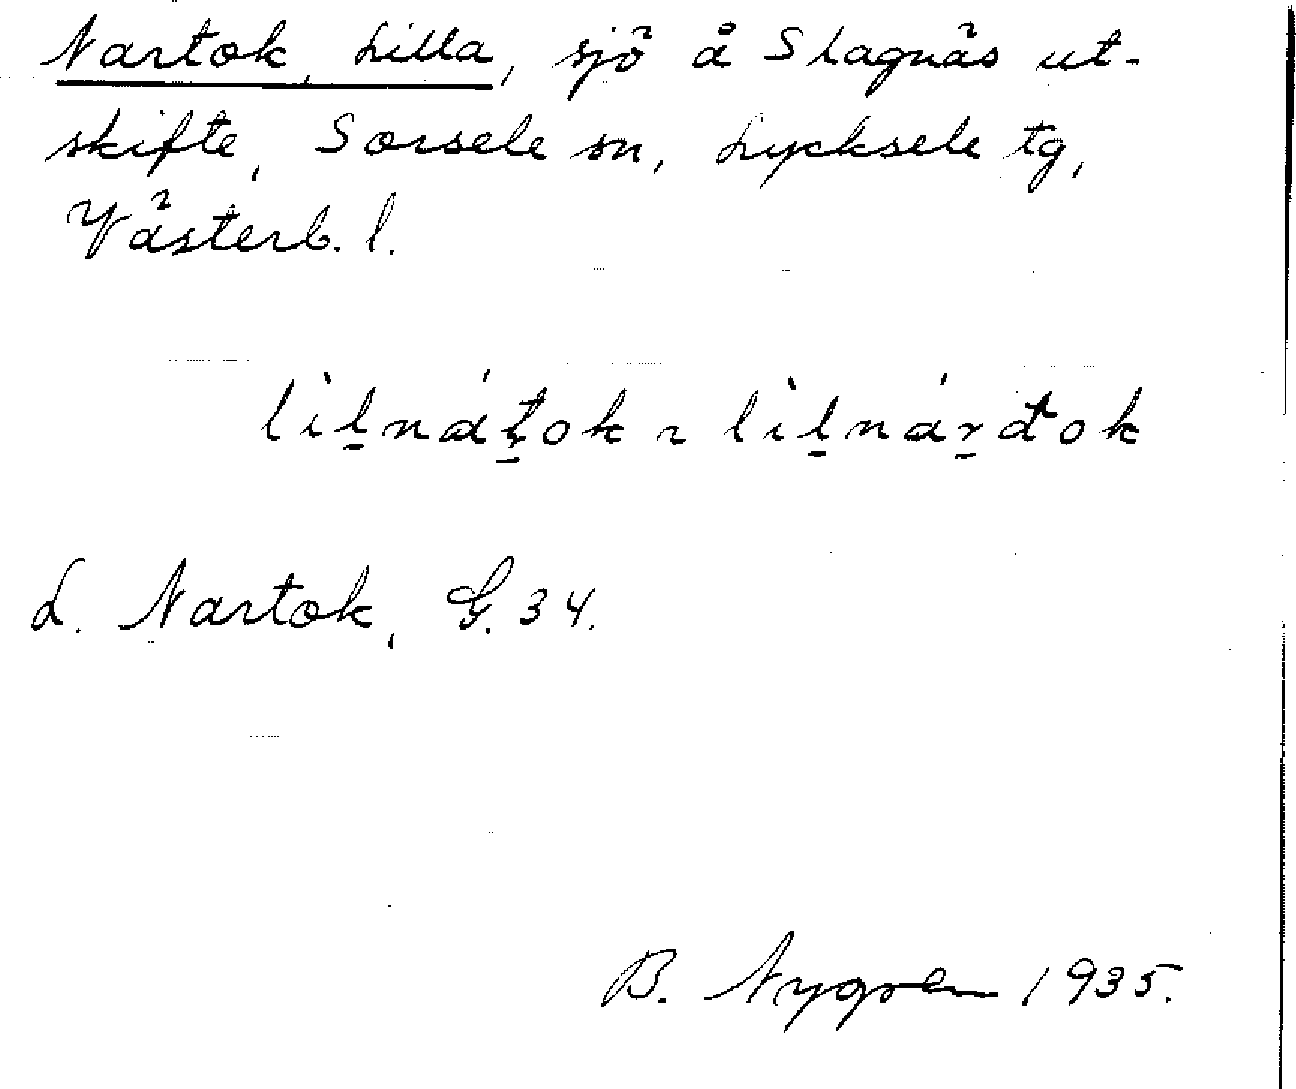 Nartok, Lilla, sjö å Slagnäs ut-
skifte, Sorsele sn, Lycksele tg,
Västerb. l.
lìl̲náṯok ~ lìl̲nár̲dtok
L. Nartok, G. 34.
B. Nygren 1935.